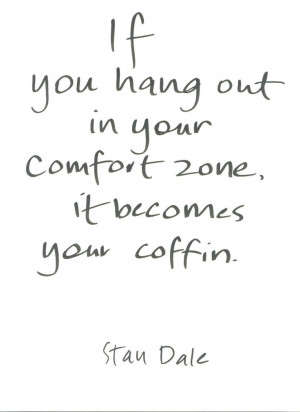 If
you hang out
in your
comfort zone,
it becomes
your coffin.
Stan Dale